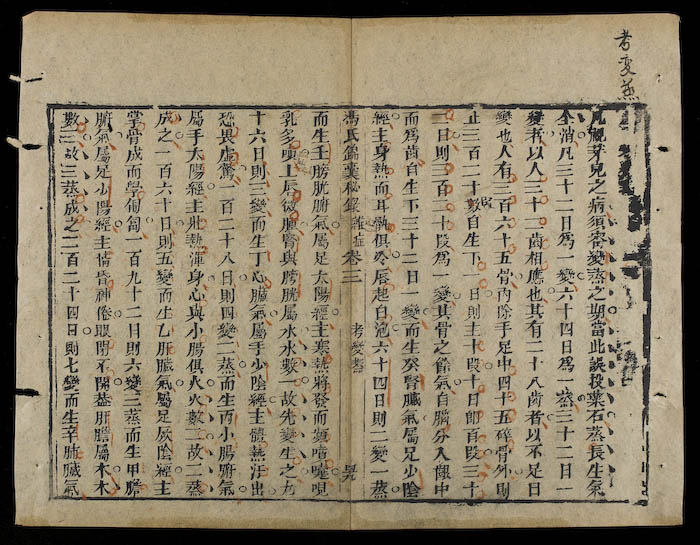 考變蒸
凡視芽兒之病須審變蒸之期當此誤投藥石蒸長生氣
全消凡三十二日為一變六十四日為一蒸三十二日一
變者以人三十二齒相應也其有二十八齒者以不足日
變也人有三百六十五骨內除手足中四十五碎骨外則
止三百二十數自生下一日則主十段十日卽百段三十
二日則三百二十段為一變其骨之餘氣自腦分入齦中
而為齒自生下三十二日一變而生癸腎臟氣屬足少陰
經主身熱而耳骩俱冷唇起白泡六十四日則二變一蒸
馮氏錦囊秘錄 雜症 卷三 考變蒸
而生壬膀胱腑氣屬足太陽經主寒熱將發而頻啼嚏吐
乳多唾上唇微腫腎與膀胱屬水水數一故先變生之九
十六日則三變而生丁心臟氣屬手少陰經主體熱汗出
恐畏虛驚一百二十八日則四變二蒸而生丙小腸腑氣
屬手太陽經主壯熱渾身心與小腸俱火火數二故二蒸
成之一百六十日則五變而生乙肝臟氣屬足厥陰經主
掌骨成而學匍匐一百九十二日則六變三蒸而生甲膽
腑氣屬足少陽經主情昏神倦眼閉不開蓋肝膽屬木木
數三故三蒸成之二百二十四日則七變而生辛肺臟氣